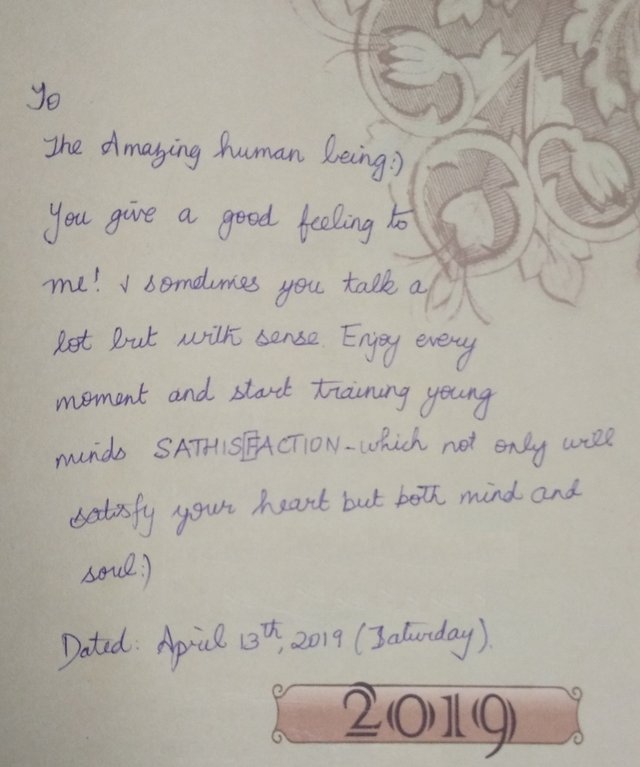 To
The Amazing human being:)
You give a good feeling to
me! & sometimes you talk a
lot but with sense. Enjoy every
moment and start training young
minds SATHISFACTION-which not only will
satisfy your heart but both mind and
soul:)
Dated: April 13th, 2019 (Saturday).
2019